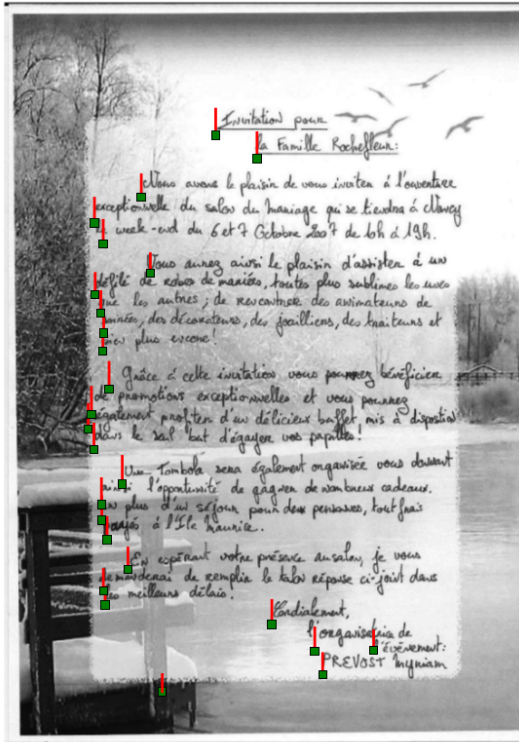 Invitation pour
la Famille Rochefleur:
Nous avons le plaisir de vous inviter à l'ouverture
exceptionnelle du salon du mariage qui se tiendra à Nancy
le week-end du 6 et 7 Octobre 2007 de 10h à 19h.
Vous aurez ainsi le plaisir d'assister à un
défilé de robes de mariées, toutes plus sublimes les unes
que les autres ; de rencontrer des animateurs de
soirées, des décorateurs, des joailliers, des traiteurs et
bien plus encore!
Grâce à cette invitation vous pourrez bénéficier
de promotions exceptionnelles et vous pourrez
également profiter d'un délicieux buffet mis à disposition
dans le seul but d'égayer vos papilles!
Une Tombola sera également organisée vous donnant
ainsi l'opportunité de gagner de nombreux cadeaux.
En plus d'un séjour pour deux personnes, tout frais
payés à l'Ile maurice.
En espérant votre présence au salon, je vous
demanderai de remplir le talon réponse ci-joint dans
les meilleurs délais.
Cordialement,
l'organisatrice de
l'événement:
PREVOST Myriam